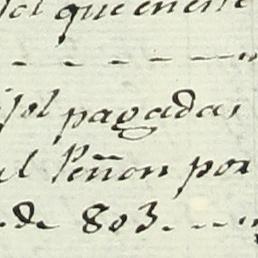 que en este
sol, pagadas
el Peñon por
de 803.